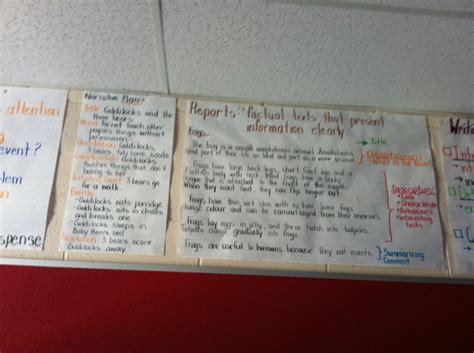 attention
event?
spense
Narrative Plan:
Title Goldilocks and the
three bears
Moral Do not touch other
peoples things without
permission
Orientation Goldilocks
3 bears, tidy home,
Complication Goldilocks
touches things that don't
belong to her
3 bears go
for a walk.
Events:
Goldilocks eats porridge
Goldilocks sits in chairs
and breaks one
Goldilocks sleeps in
Baby Bears bed
Resolution 3 bears scare
Goldilocks away
Reports: factual texts that present
information clearly
Frogs
Title
The frog is a small amphibious animal. Amphibians
spend part of their life on land and part as a water animal.
Classification:
What is the
Frogs have long back legs, short front legs and a
flattish body with
tongue is attached to the front of the mouth
When they want food, they can flip tongue out.
Description:
Look
Behaviours
Interesting
facts
Frogs have thin wet skin with no hair. Some frogs
colour and can be camouflaged from their enemies
Frogs lay eggs in jelly, and these hatch into tadpoles.
Tadpoles change gradually into frogs.
Frogs are useful to humans because they eat insects
Summarising
Comment